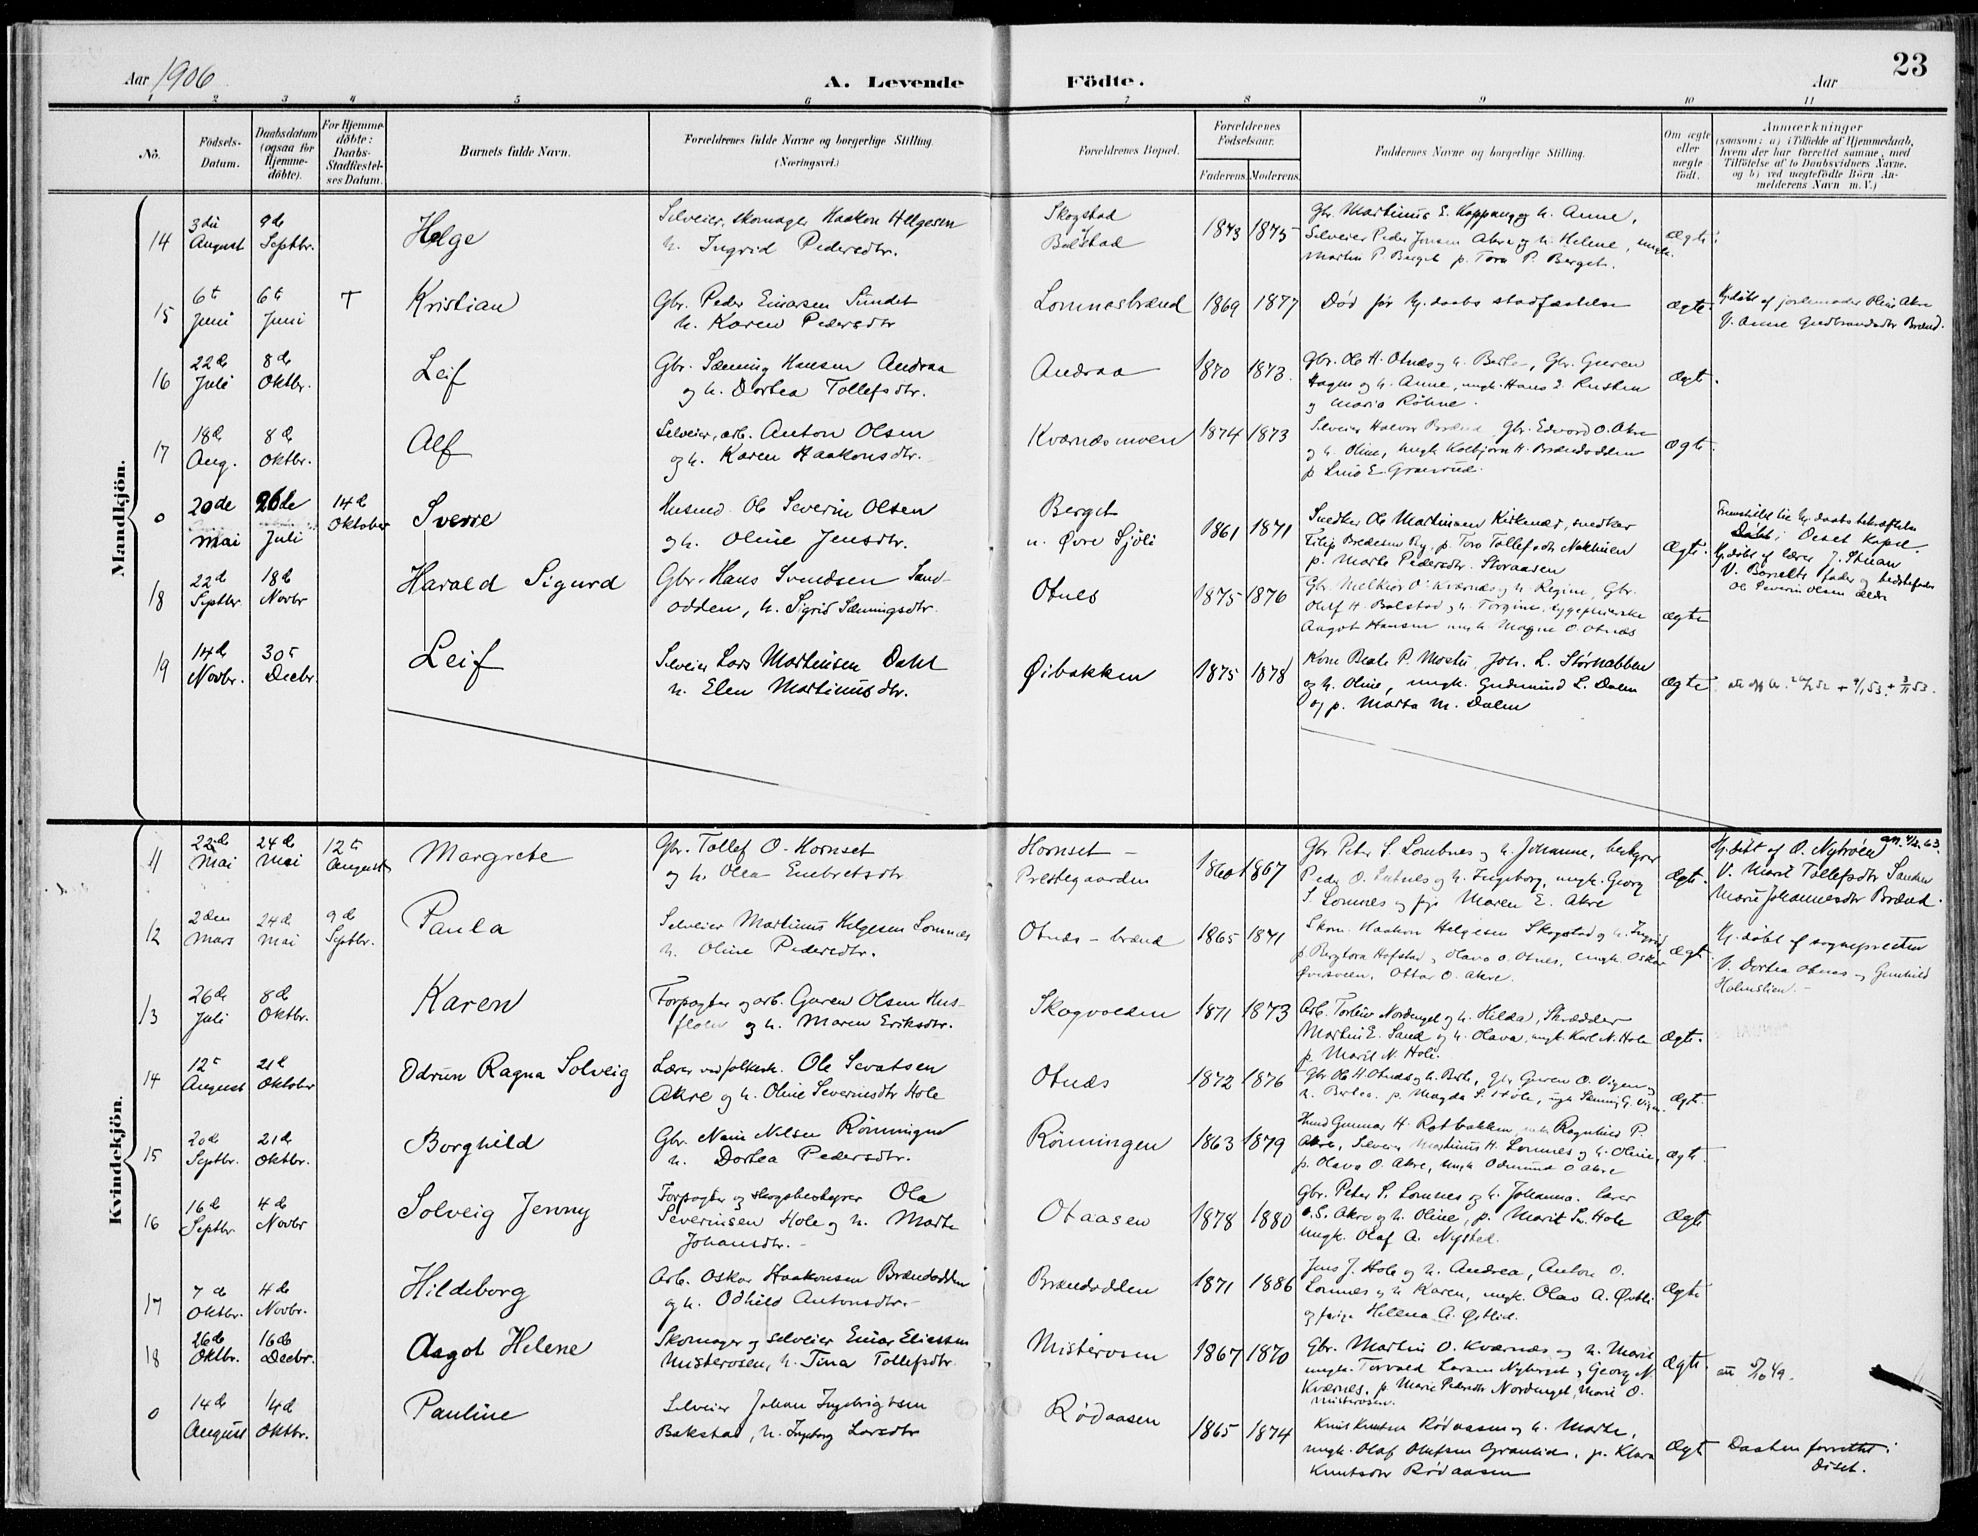 Aar 1906
A. Levende Födte.
Aar
23
1 2 3 4 5 6 7 8 9 10 11
No.
Födsels-
Datum.
Daabsdatum
(ogsaa for
Hjemme-
döbte).
For Hjemme-
döbte:
Daabs-
Stadfæstel-
ses Datum.
Barnets fulde Navn.
Forældrenes fulde Navne og borgerlige Stilling.
(Næringsvei.)
Forældrenes Bopæl.
Forældrenes
Födselsaar.
Faderens. Moderens.
Faddernes Navne og borgerlige Stilling.
Om ægte
eller
uægte
födt.
Anmærkninger
(saasom: a) i Tilfælde af Hjemmedaab,
hvem der har forrettet samme, med
Tilföielse af to Daabsvidners Navne,
og b) ved uægtefödte Börn An-
melderens Navn m. V.)
Mandkjön.
14
3die
August
9de
Septbr.
Helge
Selveier, skomager Haakon Helgesen
h. Ingrid Pedersdtr.
Skogstad
Bolstad
1873 1875
Gbr. Martinus E. Koppang og h. Anne,
Selveier Peder Jonsen Akre og h. Helene, ungk.
Martin P Berget p. Tora P. Berget.
Ægte
15
6te
Juni
6te
Juni
T
Kristian
Gbr. Peder Einarsen Sundet
h. Karen Pedersdtr
Lomnesbrænd
1869 1877
Død før hj.daabs stadfæstelse
Ægte.
Hj.døbt af jordemoder Oline Akre
V. Anne Gudbrandsdtr Brænd.
16
22de
Juli
8de
Oktbr.
Leif
Gbr. Sæming Hansen Andraa
og h. Dortea Tollefsdtr.
Andraa
1870 1873.
Gbr. Ole H. Otnes og h. Berte, Gbr. Guren
Hagen og h. Anne, ungk. Hans
og Maria Röhne.
Ægte.
17
18de
Aug.
8de
Oktbr.
Alf
Selveier, arb. Anton Olsen
og h. Karen Haakonsdtr.
Kværnesmoen
1874 1873
Selveier Halvor Brænd, Gbr. Edvard O. Akre
og h. Oline, ungk Kolbjørn H. Brændodden
p
Ægte.
0
20de
Mai
26de
Juli
14de
Oktober
Sverre
Husmd. Ole Severin Olsen
og h. Oline Jensdtr.
Berget
u. Øvre Sjöli
1861 1871
Snedker Ole Martinsen Kirkenær, snedker
Filip Bredesen By, p. Tora Tollefsdtr Nokkuen
p. Marte Pedersdtr. Storaasen
Ægte.
Fremstillet til hj.daabs bekræftelse
Döbt i Osset Kapel.
Hj.døbt af lærer J. Stuan
V. Barnets fader og bedstefader
Ole Severin Olsen ældre
18
22de
Septbr
18de
Novbr
Harald Sigurd
Gbr. Hans Svendsen Sand-
odden, h. Sigrid Sæmingsdtr.
Otnes
1875 1876
Gbr. Melkior O. Kværnes og h. Regine, Gbr.
Olef H. Bolstad og h. Torgine, sygepleierske
Aagot Hansen ungk. Magne O. Otnes
Ægte
19
14de
Novbr.
30te
Decbr.
Leif
Selveier Lars Martinsen Dahl
h. Elen Martinusdtr.
Øibakken
1875 1878
Kone Beate P. Mostu, Joh. L. Störnabben
og h. Oline, ungk. Gudmund L. Dalen
og p. Marta M. Dalen
Ægte
Kvindekjön.
11
22de
Mai
24de
Mai
12te
August
Margrete
Gbr. Tollef O. Hornset
og h. Olea Embretsdtr.
Hornset –
Prestegaarden
1860 1867
Gbr Peter S. Lomnes og h. Johanne, bestyrer
Peder O. Lutnes og h. Ingeborg, ungk. Georg
S. Lomnes og pige Maren E. Akre
Ægte.
Hj.døbt af O. Nytröen
V. Marit Tollefsdtr Sanden
Marie Johannesdtr Brænd.
12
2den
Mars
24de
Mai
9de
Septbr.
Paula
Selveier Martinus Helgesen Lomnes
h. Oline Pedersdtr.
Otnes – brænd
1865 1871
Skom. Haakon Helgesen Skogstad og h. Ingrid
p Bergtora Hofstad, Olava O. Otnes, ungk. Oskar
Øversveen, Ottar O. Akre.
Ægte
Hj.døbt af sognepresten
V. Dortea Otnes og Gunhild
Holmslien. –
13
26de
Juli
8de
Oktbr.
Karen
Forpagter og arb. Guren Olsen Hus-
floen og h. Maren Eriksdtr.
Skogvolden
1871 1873
Arb. Torleiv Nordenget og h. Hilda, Skrædder
Martin E. Sand og h. Olava, ungk. Karl N. Hole
p. Marit N. Hole.
Ægte.
14
12te
August
21de
Oktober
Odrun Ragna Solveig
Lærer ved folkesk. Ole Sevatsen
Akre og h. Oline Severinsdtr Hole
Otnes
1872 1876
Gbr Ole H Otnes og h. Berte, Gbr Guren O. Vigen og
h. Bertea. p. Magda S. Hole, ungk Sæming G. Vigen.
Ægte.
15
20de
Septbr.
21de
Oktbr.
Borghild
Gbr. Nils Nilsen Rönningen
h. Dortea Pedersdtr.
Rönningen
1863 1879
Husmd Gunnar H. Rotbakken, enke Ragnhild P.
Akre, Selveier Martinus H. Lomnes og h. Oline,
p. Olava O. Akre, ungk Odmund O Akre
Ægte.
16
16de
Septbr
4de
Novbr
Solveig Jenny
Forpagter og skogsbestyrer Ola
Severinsen Hole og h. Marte
Johansdtr. –
Otaasen
1878 1880
Gbr. Peter S. Lomnes og h. Johanna. lærer
O.S. Akre og h. Oline, p. Marit Sv. Hole
ungk. Olaf A. Nysted.
Ægte
17
7de
Oktbr.
4de
Novbr.
Hildeborg
Arb. Oskar Haakonsen Brændodden
og h. Odhild Antonsdtr. –
Brændodden
1871 1886
Jens J. Hole og h. Andrea, Anton O.
Lomnes og h Karen, ungk. Olav A. Øvlli
og pige Hellena A. Østlid.
Ægte
18
26de
Oktbr.
16de
Decbr.
Aagot Helene
Skomager og selveier Einar Eliassen
Misterosen, h. Tina Tollefsdtr.
Misterosen
1867 1870
Gbr. Martin O. Kværnes og h. Marit
ungk. Torvald Larsen Nyberget, Georg N.
Kværnes. p. Marie Pedersdtr Nordenget, Marie O.
Misterosen.
Ægte.
0
14de
August
14de
Oktbr.
Pauline
Selveier Johan Ingebrigtsen
Bakstad, h. Ingeborg Larsdtr
Rödaasen
1865 1874
Knut Knutsen Rödaasen og h. Marte,
ungk. Olaf Olufsen Granlid, p. Klara
Knutsdtr Rödaasen
Ægte
Daaben forrettet i
Osset.